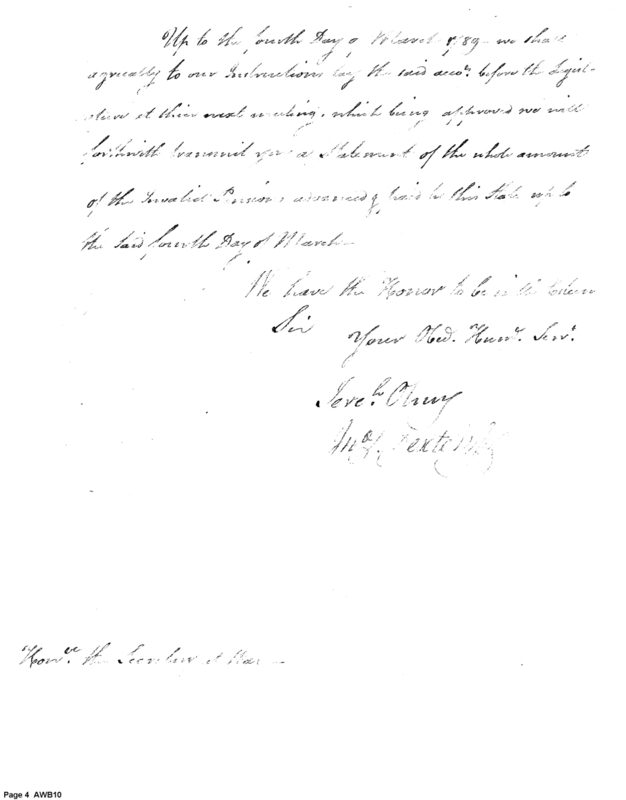 Up to the fourth Day of March 1789 we shall
agreeably to our Instructions lay the said acco.ts before the Legisl-
ature at their next meeting, which being approved we will
forthwith transmit you a Statement of the whole amount
of the Invalid Pensions advanced & paid by this State up to
the said fourth Day of March
We have the Honor to be with
Sir
Your Obd. Hum.e Serv.t
Jere.h Olney
Honr. the Secretary at War
Page 4 AWB10